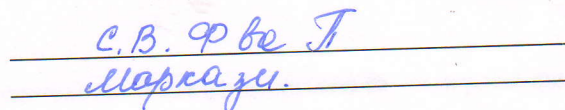 С.В. Ф ва П
Маркази.